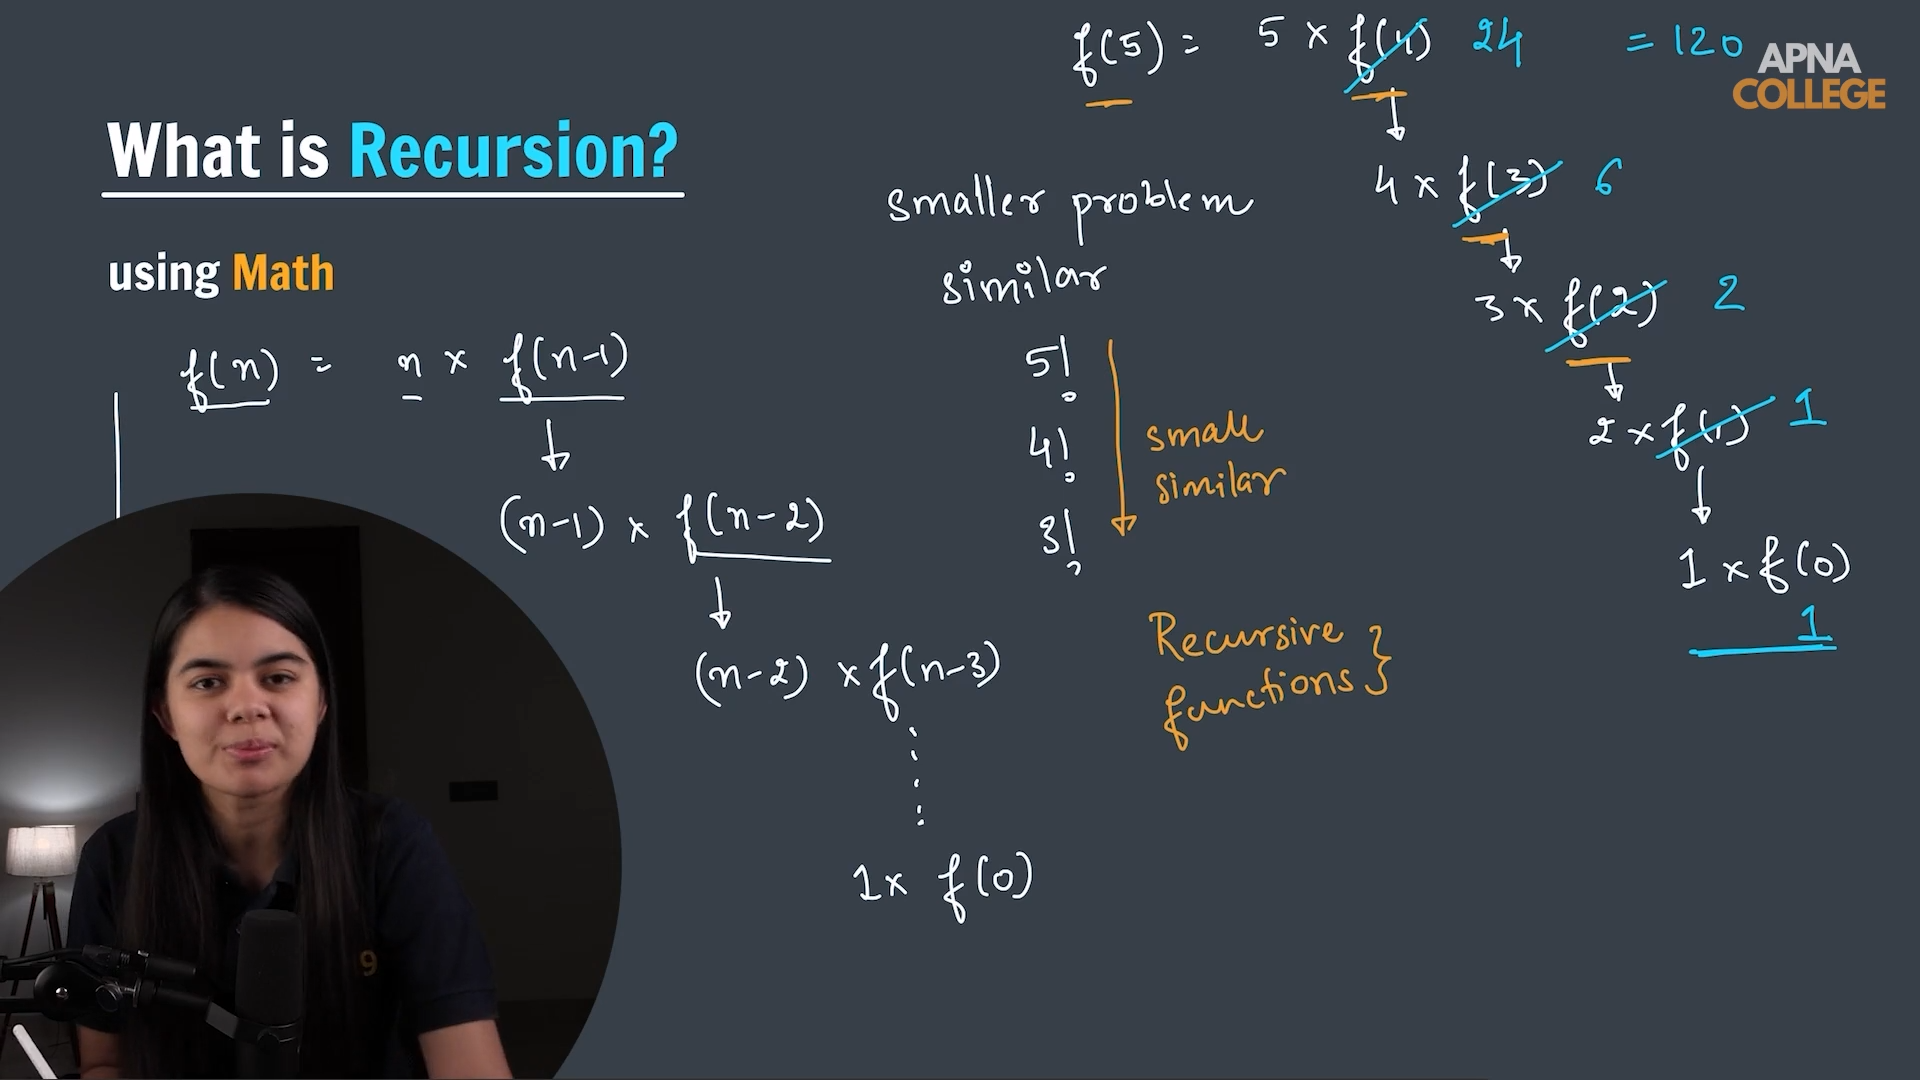 What is Recursion?
using Math
f(n) = n x f(n-1)
(n-1) x f(n-2)
(n-2) x f(n-3)
1x f(0)
smaller problem
similar
5!
4!
3!
small
similar
Recursive
functions}
f(5) = 5 x f(4) 24 = 120
4 x f(3) 6
3 x f(2) 2
2 x f(1) 1
1 x f(0)
1
APNA
COLLEGE
9